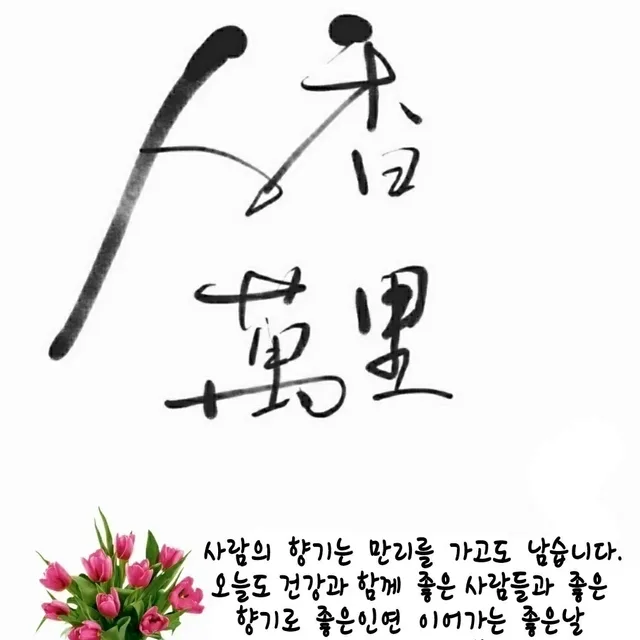 人香
萬里
사람의 향기는 만리를 가고도 남습니다.
오늘도 건강과 함께 좋은 사람들과 좋은
향기로 좋은인연 이어가는 좋은날